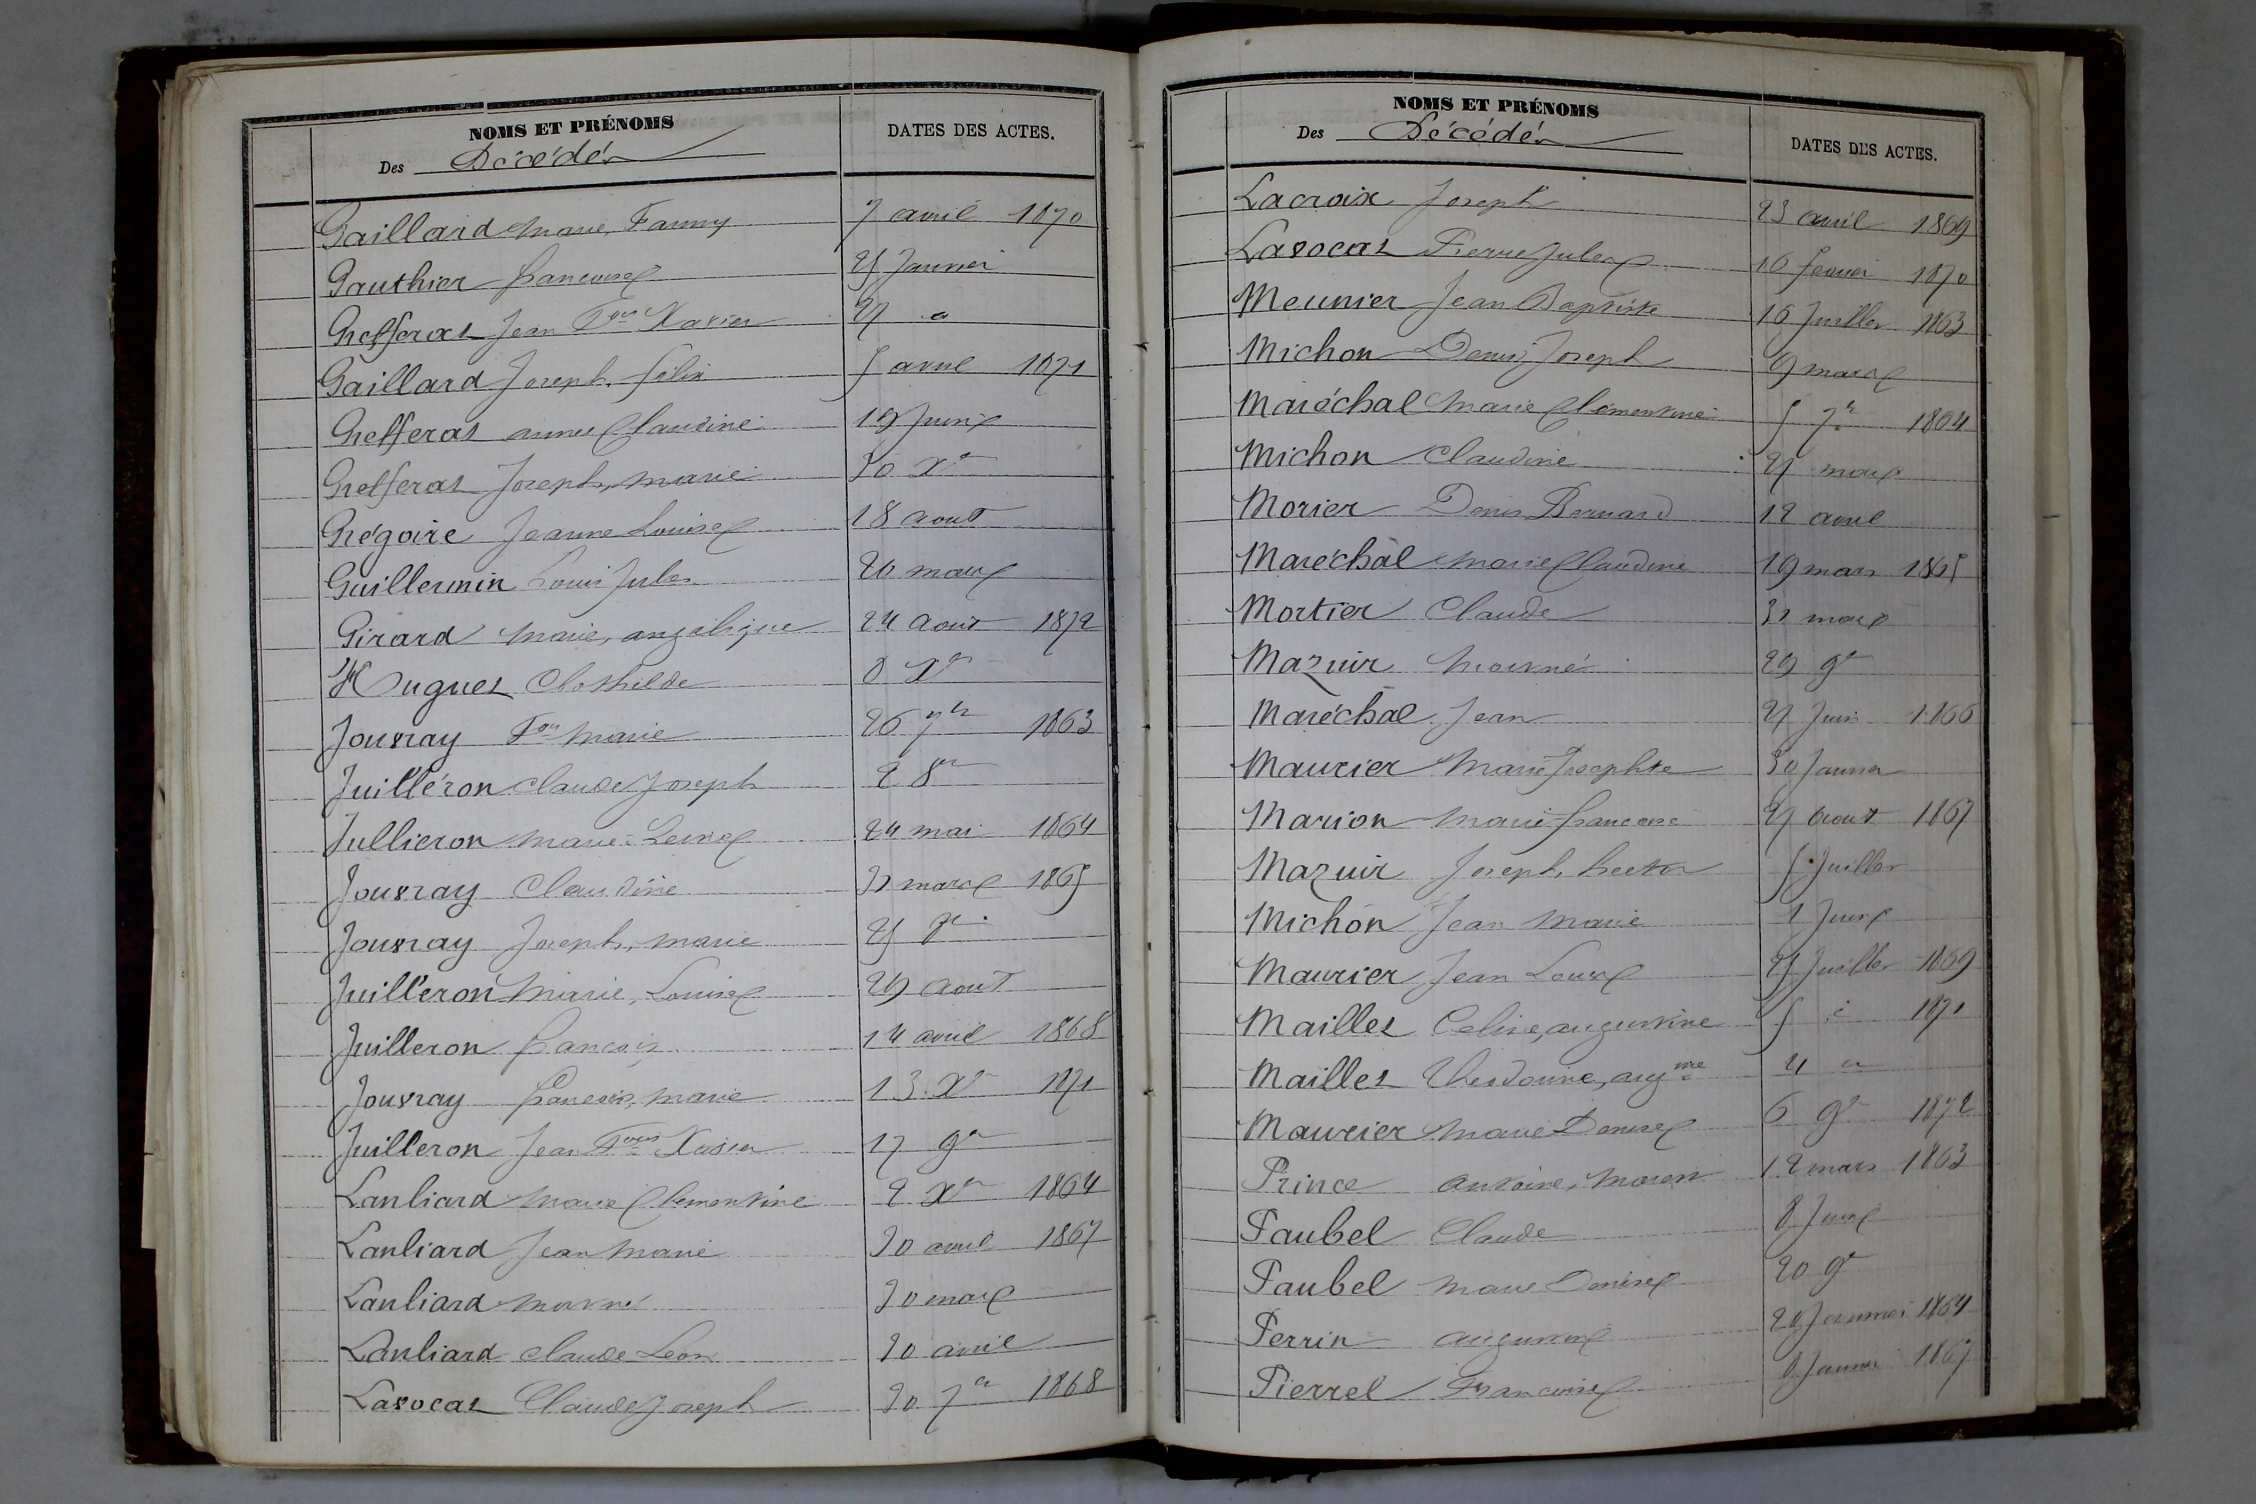 NOMS ET PRÉNOMS
Des Décédés
DATES DES ACTES.
Gaillard Marie, Fanny 7 avril 1870
Gauthier francoise 25 Janvier
Greffieras Jean Fois Xavier 27 d
Gaillard Joseph, felix 5 avril 1871
Grefferas anne Claudine 19 Juin
Grefferas Joseph, marie 30 Xe
Grégoire Jeanne Louise 18 aout
Guillermin Louis Jules 20 mars
Girard Marie, angelique 24 aout 1872
Hugues Clothilde 8 Xe
Jouvray Fois Marie 26 7bre 1863
Juilléron Claude Joseph 2 8re
Jullieron Marie-Louise 24 mai 1864
Jouvray Claudine 31 mars 1865
Jouvray Joseph, marie 25
Juilleron Marie, Louise 29 aout
Juilleron francois 14 avril 1868
Jouvray francois, marie 13 Xe 1871
Juilleron Jean Fois Xavier 17 9e
Lanliard Marie Clementine 2 Xe 1864
Lanliard Jean Marie 30 avril 1867
Lanliard mort né 30 mars
Lanliard Claude Leon 30 avril
Lavocat Claude Joseph 30 7e 1868
NOMS ET PRÉNOMS
Des Décédés
DATES DES ACTES.
Lacroix Joseph 23 avril 1869
Lavocat Pierre Jules 16 fevrier 1870
Meunier Jean Baptiste 16 Juillet 1863
Michon Denis, Joseph 9 mars
Maréchal Marie Clémentine 5 7e 1864
Michon Claudine 27 mars
Morier Denis Bernard 12 avril
Maréchal Marie Claudine 19 mars 1865
Mortier Claude 31 mars
Mazuir Mort né 29 9e
Maréchal Jean 27 Juin 1866
Maurier Marie Josephte 30 Janvier
Marion Marie-francoise 27 aout 1867
Mazuir Joseph, hector 5 Juillet
Michon Jean Marie 1 Juin
Maurier Jean Louis 25 Juillet 1869
Mailles Celine, augustine 5 d 1871
Mailles augme 4 d
Maurier Marie Denise 6 9e 1872
Prince antoine, 12 mars 1863
Paubel Claude 8 Juin
Paubel Marie Denise 20 9e
Perrin 20 Janvier 1864
Pierrel Francoise 8 Janvier 1867